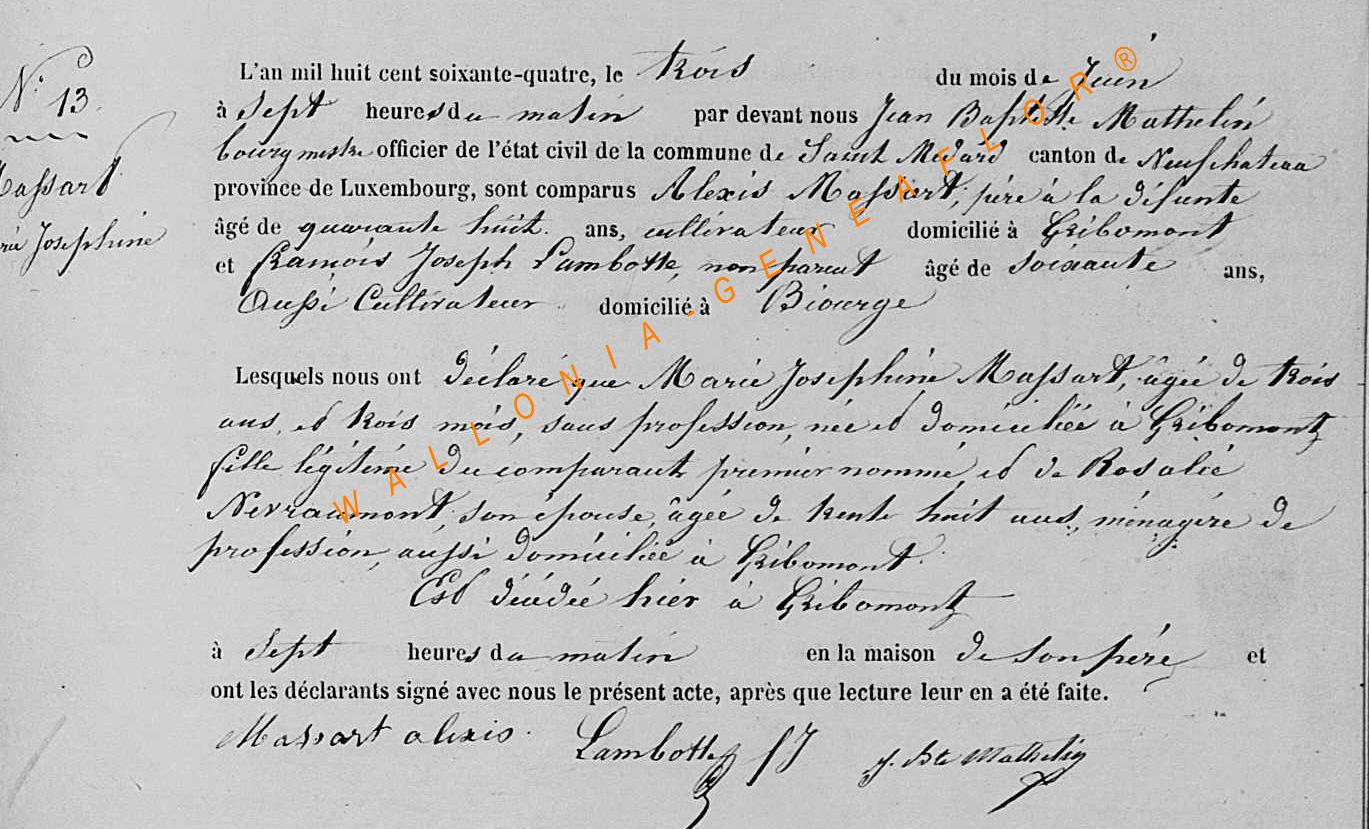 N° 13.
Massart
Marie Joséphine
L'an mil huit cent soixante-quatre, le trois du mois de Juin
à Sept heures du matin par devant nous Jean Baptiste Mathelin
bourgmestre officier de l'état civil de la commune de Saint Médard canton de Neufchateau
province de Luxembourg, sont comparus Alexis Massart, père à la défunte
âgé de quarante huit ans, cultivateur domicilié à Gribomont
et François Joseph Lambotte, non parent âgé de soixante ans,
Aussi Cultivateur domicilié à Biourge
Lesquels nous ont déclaré que Marie Joséphine Massart, âgée de trois
ans, et trois mois, sans profession, née et domiciliée à Gribomont
fille légitime du comparant premier nommé, et de Rosalie
Nevraumont, son épouse, âgée de trente huit ans, ménagère de
profession, aussi domiciliée à Gribomont.
Est décédée hier à Gribomont
à Sept heures du matin en la maison de son père et
ont les déclarants signé avec nous le présent acte, après que lecture leur en a été faite.
Massart alexis. Lambotte fJ J. Bte Mathelin
WALLONIA-GENEAFLOR®